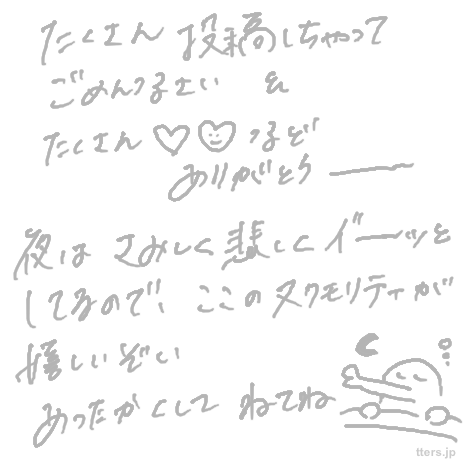 たくさん 投稿しちゃって
ごめんつるさい を
たくさん♡♡つるぞ
ありがとう――
夜は さみしく 悲しく イ゛ーッと
してるので、ここのヌクモリティが
嬉しいぞい
あったかくして ねてね
tters.jp